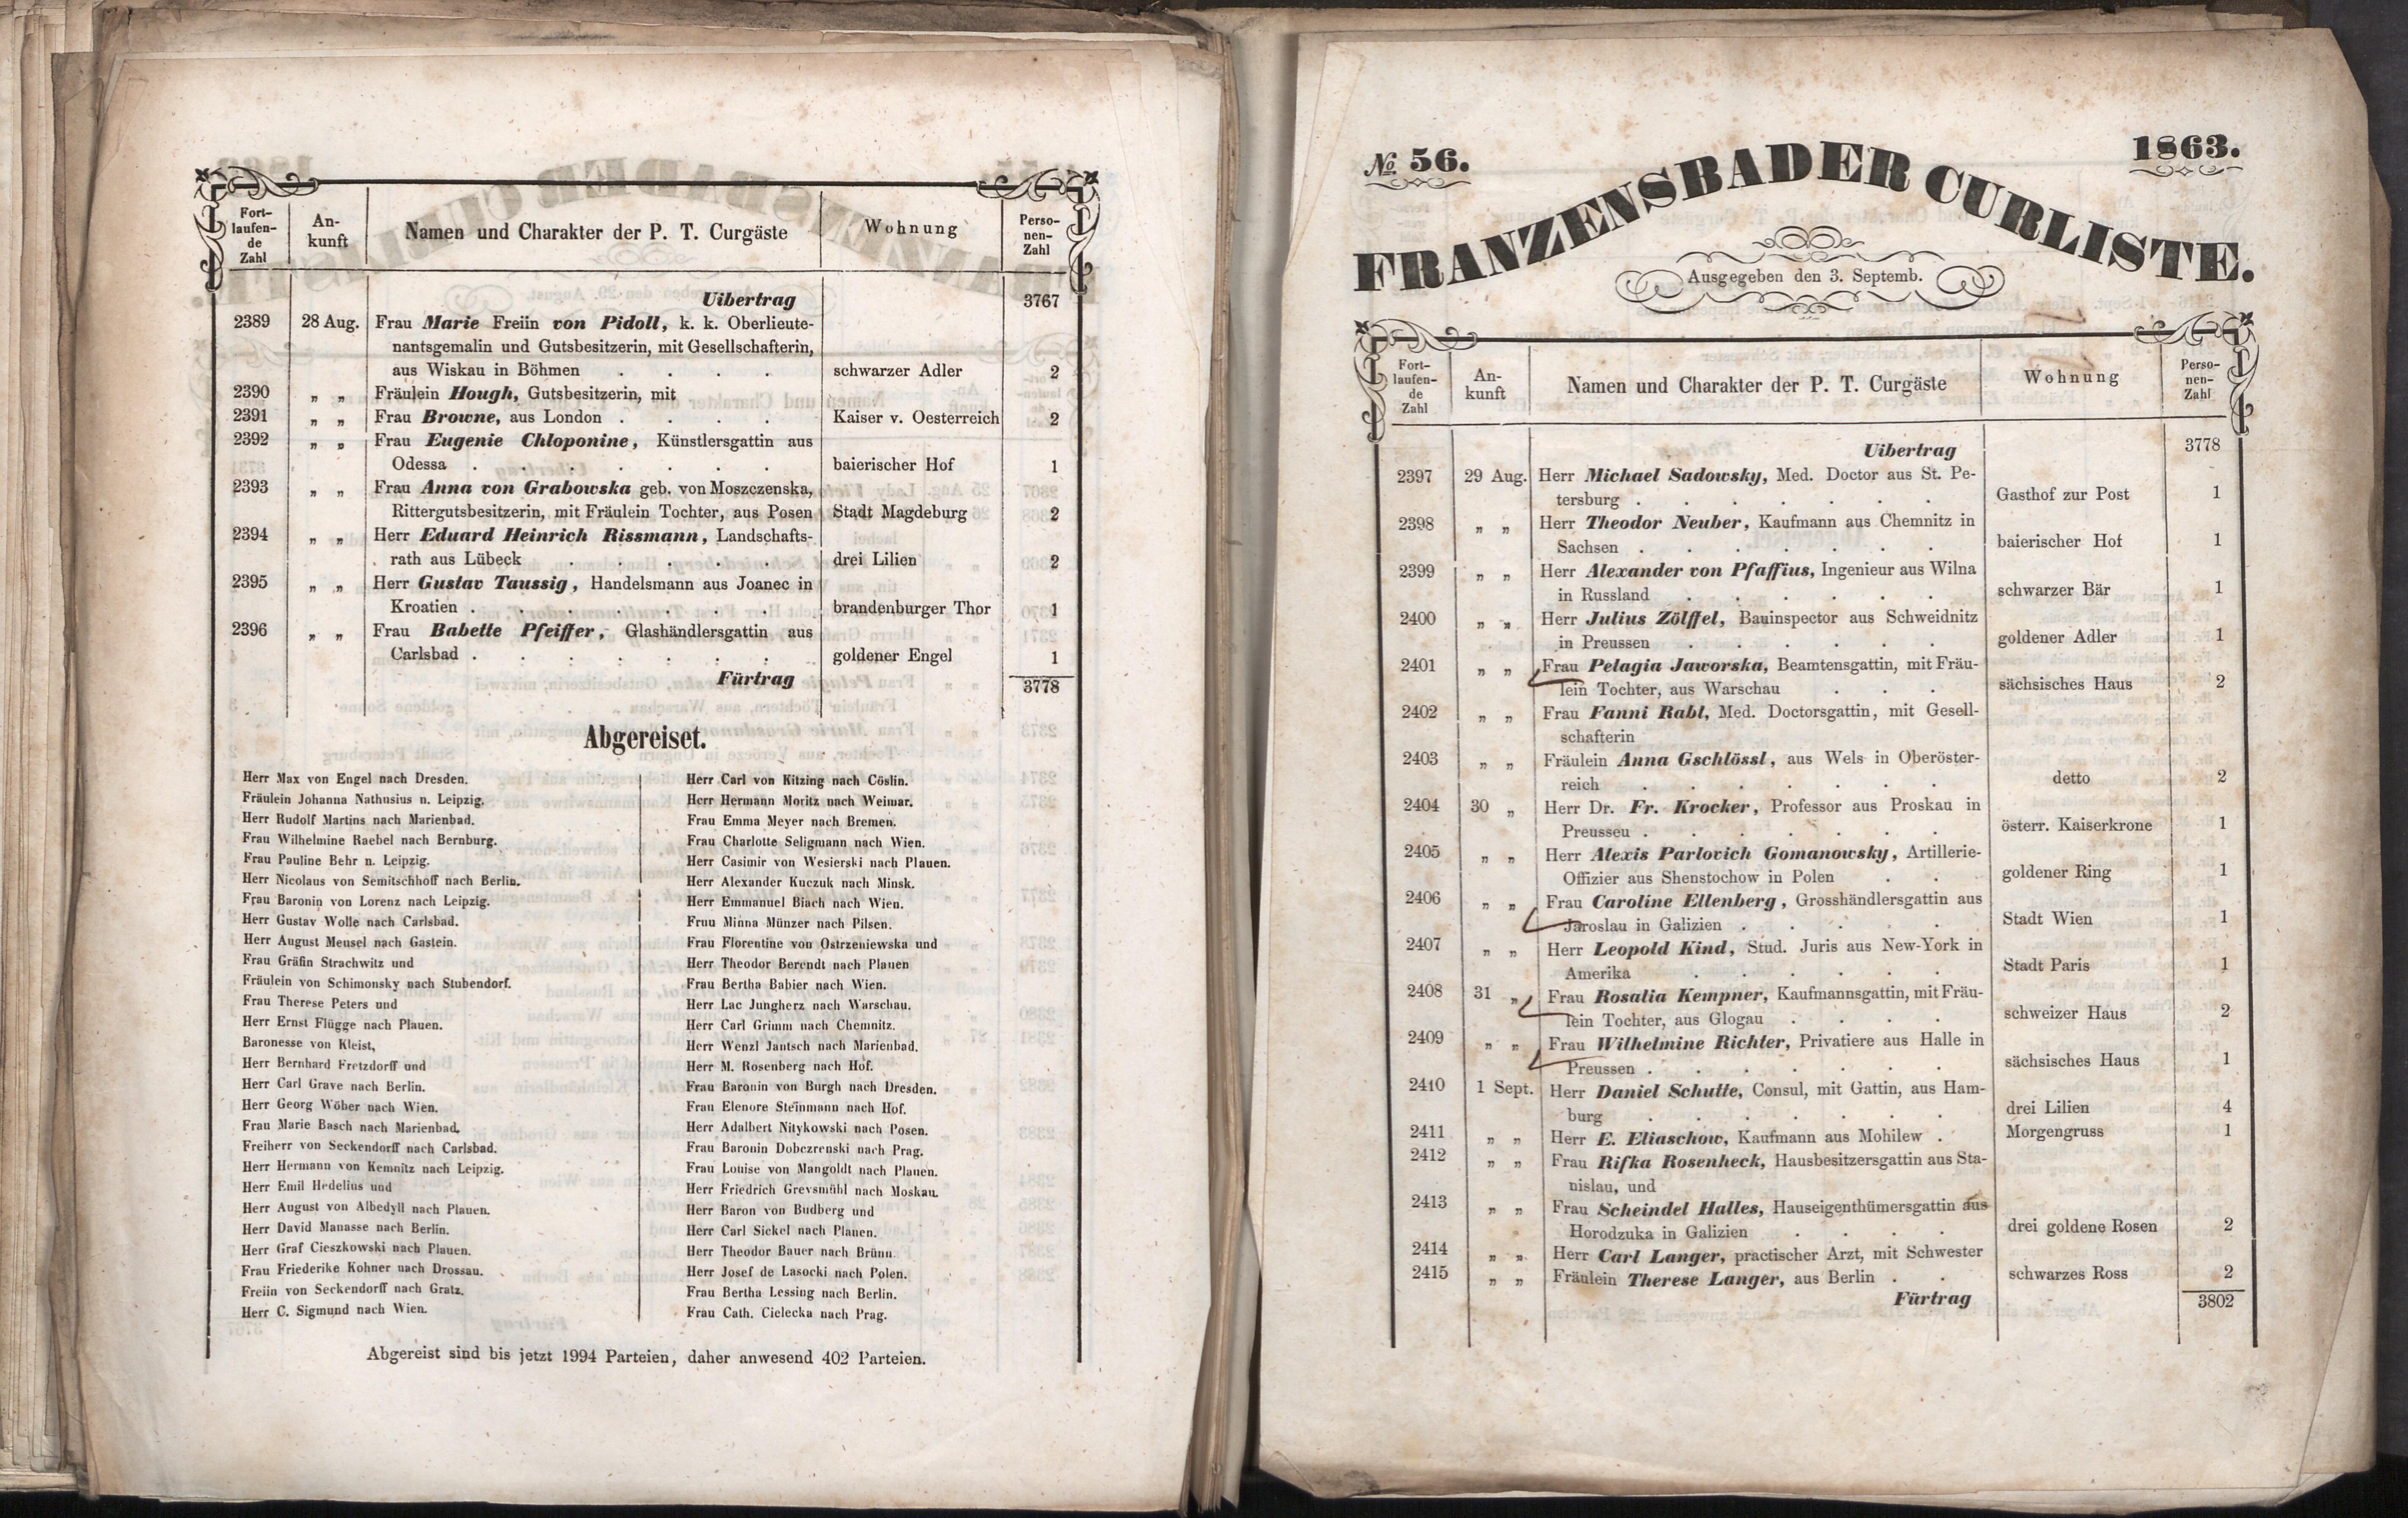 Fort-
laufen-
de
Zahl
An-
kunft
Namen und Charakter der P. T. Curgäste
Wohnung
Perso-
nen-
Zahl
Uibertrag 3767
2389 28 Aug. Frau Marie Freiin von Pidoll, k. k. Oberlieute-
nantsgemalin und Gutsbesitzerin, mit Gesellschafterin,
aus Wiskau in Böhmen . . . . schwarzer Adler 2
2390 „ „ Fräulein Hough, Gutsbesitzerin, mit
2391 „ „ Frau Browne, aus London . . . . Kaiser v. Oesterreich 2
2392 „ „ Frau Eugenie Chloponine, Künstlersgattin aus
Odessa . . . . . . . baierischer Hof 1
2393 „ „ Frau Anna von Grabowska geb. von Moszczenska,
Rittergutsbesitzerin, mit Fräulein Tochter, aus Posen Stadt Magdeburg 2
2394 „ „ Herr Eduard Heinrich Rissmann, Landschafts-
rath aus Lübeck . . . . . drei Lilien 2
2395 „ „ Herr Gustav Taussig, Handelsmann aus Joanec in
Kroatien . . . . . . . brandenburger Thor 1
2396 „ „ Frau Babette Pfeiffer, Glashändlersgattin aus
Carlsbad . . . . . . . goldener Engel 1
Fürtrag 3778
Abgereiset.
Herr Max von Engel nach Dresden.
Fräulein Johanna Nathusius n. Leipzig.
Herr Rudolf Martins nach Marienbad.
Frau Wilhelmine Raebel nach Bernburg.
Frau Pauline Behr n. Leipzig.
Herr Nicolaus von Semitschhoff nach Berlin.
Frau Baronin von Lorenz nach Leipzig.
Herr Gustav Wolle nach Carlsbad.
Herr August Meusel nach Gastein.
Frau Gräfin Strachwitz und
Fräulein von Schimonsky nach Stubendorf.
Frau Therese Peters und
Herr Ernst Flügge nach Plauen.
Baronesse von Kleist,
Herr Bernhard Fretzdorff und
Herr Carl Grave nach Berlin.
Herr Georg Wöber nach Wien.
Frau Marie Basch nach Marienbad.
Freiherr von Seckendorff nach Carlsbad.
Herr Hermann von Kemnitz nach Leipzig.
Herr Emil Hedelius und
Herr August von Albedyll nach Plauen.
Herr David Manasse nach Berlin.
Herr Graf Cieszkowski nach Plauen.
Frau Friederike Kohner nach Drossau.
Freiin von Seckendorff nach Gratz.
Herr C. Sigmund nach Wien.
Herr Carl von Kitzing nach Cöslin.
Herr Hermann Moritz nach Weimar.
Frau Emma Meyer nach Bremen.
Frau Charlotte Seligmann nach Wien.
Herr Casimir von Wesierski nach Plauen.
Herr Alexander Kuczuk nach Minsk.
Herr Emmanuel Biach nach Wien.
Frau Minna Münzer nach Pilsen.
Frau Florentine von Ostrzeniewska und
Herr Theodor Berendt nach Plauen
Frau Bertha Babier nach Wien.
Herr Lac Jungherz nach Warschau.
Herr Carl Grimm nach Chemnitz.
Herr Wenzl Jantsch nach Marienbad.
Herr M. Rosenberg nach Hof.
Frau Baronin von Burgh nach Dresden.
Frau Elenore Steinmann nach Hof.
Herr Adalbert Nitykowski nach Posen.
Frau Baronin Dobczrenski nach Prag.
Frau Louise von Mangoldt nach Plauen.
Herr Friedrich Grevsmühl nach Moskau.
Herr Baron von Budberg und
Herr Carl Sickel nach Plauen.
Herr Theodor Bauer nach Brünn
Herr Josef de Lasocki nach Polen.
Frau Bertha Lessing nach Berlin.
Frau Cath. Cielecka nach Prag.
Abgereist sind bis jetzt 1994 Parteien, daher anwesend 402 Parteien.
No. 56. 1863.
FRANZENSBADER CURLISTE.
Ausgegeben den 3. Septemb.
Fort-
laufen-
de
Zahl
An-
kunft
Namen und Charakter der P. T. Curgäste
Wohnung
Perso-
nen-
Zahl
Uibertrag 3778
2397 29 Aug. Herr Michael Sadowsky, Med. Doctor aus St. Pe-
tersburg . . . . . . . Gasthof zur Post 1
2398 „ „ Herr Theodor Neuber, Kaufmann aus Chemnitz in
Sachsen . . . . . . . baierischer Hof 1
2399 „ „ Herr Alexander von Pfaffius, Ingenieur aus Wilna
in Russland . . . . . . schwarzer Bär 1
2400 „ „ Herr Julius Zölffel, Bauinspector aus Schweidnitz
in Preussen . . . . . . goldener Adler 1
2401 „ „ Frau Pelagia Jaworska, Beamtensgattin, mit Fräu-
lein Tochter, aus Warschau . . . sächsisches Haus 2
2402 „ „ Frau Fanni Rabl, Med. Doctorsgattin, mit Gesell-
schafterin
2403 „ „ Fräulein Anna Gschlössl, aus Wels in Oberöster-
reich . . . . . . . detto 2
2404 30 „ Herr Dr. Fr. Krocker, Professor aus Proskau in
Preusseu . . . . . . . österr. Kaiserkrone 1
2405 „ „ Herr Alexis Parlovich Gomanowsky, Artillerie-
Offizier aus Shenstochow in Polen . . goldener Ring 1
2406 „ „ Frau Caroline Ellenberg, Grosshändlersgattin aus
Jaroslau in Galizien . . . . . Stadt Wien 1
2407 „ „ Herr Leopold Kind, Stud. Juris aus New-York in
Amerika . . . . . . Stadt Paris 1
2408 31 „ Frau Rosalia Kempner, Kaufmannsgattin, mit Fräu-
lein Tochter, aus Glogau . . . . schweizer Haus 2
2409 „ „ Frau Wilhelmine Richter, Privatiere aus Halle in
Preussen . . . . . . . sächsisches Haus 1
2410 1 Sept. Herr Daniel Schutte, Consul, mit Gattin, aus Ham-
burg . . . . . . . drei Lilien 4
2411 „ „ Herr E. Eliaschow, Kaufmann aus Mohilew . Morgengruss 1
2412 „ „ Frau Rifka Rosenheck, Hausbesitzersgattin aus Sta-
nislau, und
2413 „ „ Frau Scheindel Halles, Hauseigenthümersgattin aus
Horodzuka in Galizien . . . . drei goldene Rosen 2
2414 „ „ Herr Carl Langer, practischer Arzt, mit Schwester
2415 „ „ Fräulein Therese Langer, aus Berlin . . schwarzes Ross 2
Fürtrag 3802